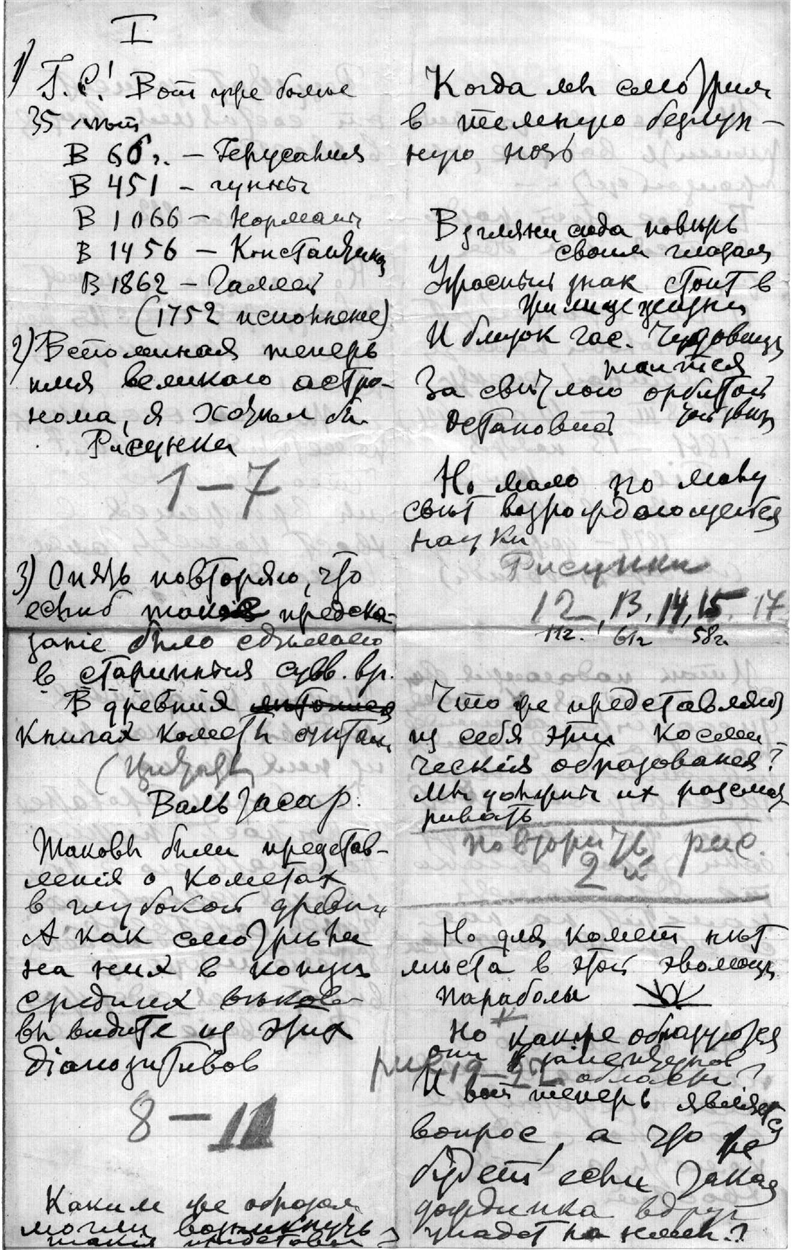 I
1) Г.С.! Вот уже более
35 лет
В 66 г. – Іерусалим
В 451 – гунны
В 1066 – Норман
В 1456 – Констант
В 1862 – Галлей
(1752 исполнение)
2) Вспоминая теперь
имя великаго астро-
нома, я хотел бы
Рисунки
1–7
3) Опять повторяю, что
еслиб такое предска-
заніе было сделано
в старинныя вр.
В древних
книгах кометы считали
Валтасар.
Таковы были представ-
ленія о кометах
в глубокой древн
А как смотрели
на них в конце
средних веков
вы видите из этих
діапозитивов
8–11
Каким же образом
могли возникнуть
такія представл ?
Когда мы смотрим
в темную безлун-
ную ночь
Взгляни сюда поверь
своим глазам
Ужасный знак стоит в
жилище жизни
И близок час. Чудовище
таится
За светлою орбитой
Но мало по малу
свет возрождающейся
науки
Рисунки
12, 13, 14, 15, 17
11г. 61г. 58г.
Что же представляют
из себя эти косми-
ческія образованія?
Мы должны их рассмат
ривать
повторить рис.
2й
Но для комет нет
места в этой эволюціи
параболы
Но как же образуются
они
рис. 19–22
И вот теперь является
вопрос, а что же
будет если такая
вдруг
упадет на землю?